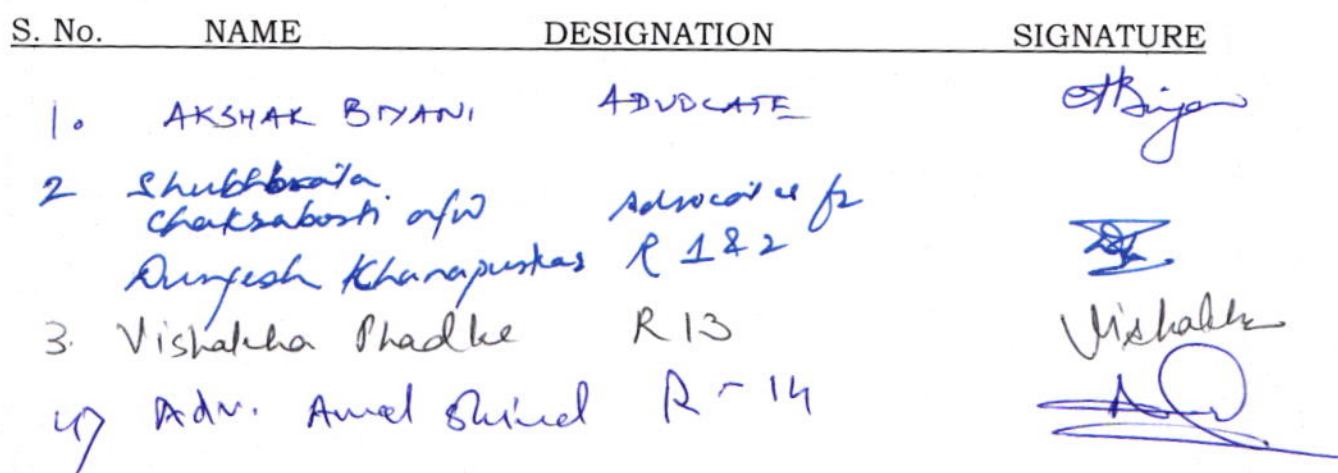 S. No. NAME DESIGNATION SIGNATURE
1. AKSHAK BIYANI ADVOCATE
2 Shubhbrata
Chakraborti a/w Advocate for
Durgesh Khanapurkar R 1 & 2
3. Vishakha Phadke R 13 Vishakha
4) Adv. Amol Shind R - 14